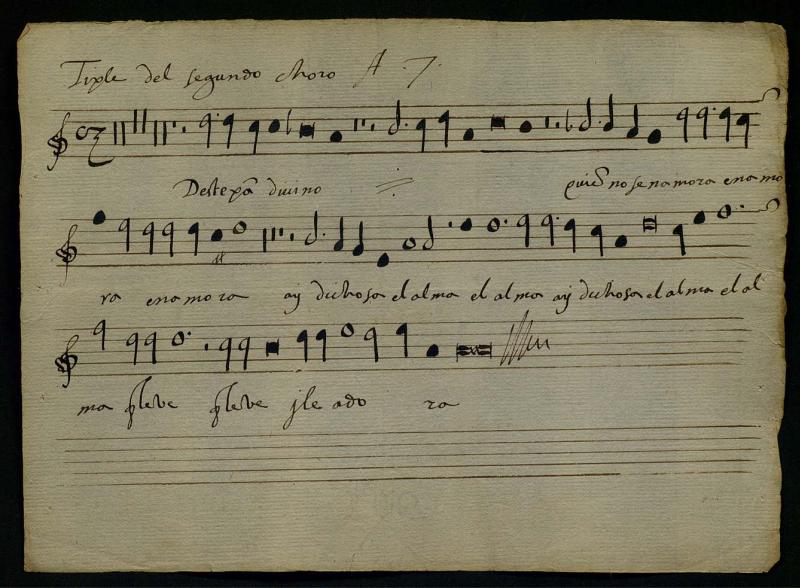 Tiple del segundo choro A 7.
Destepã divino quiẽ no se namora enamo
ra enamora ay dichosa el alma el alma ay dichosa el alma el al
ma q̃ leve q̃ leve jle ado ra